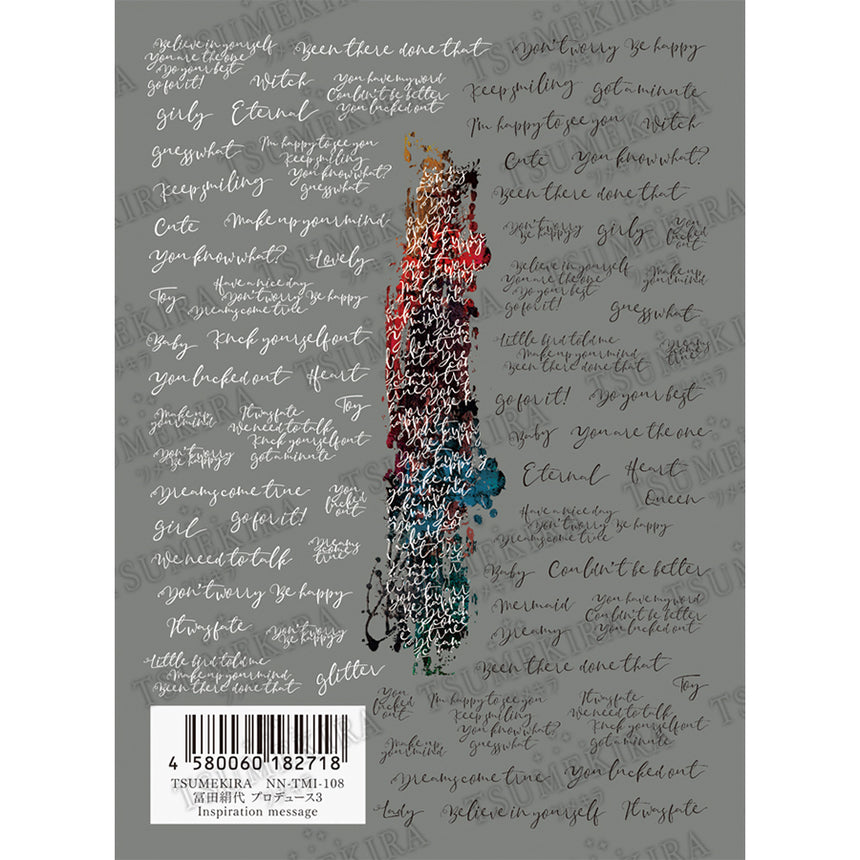 Believe in yourself
You are the one
Do your best
go for it!
Been there done that
Witch
You have my word
Couldn't be better
You lucked out
girly
Eternal
guess what
I'm happy to see you
Keep smiling
You know what?
guess what
Keep smiling
Cute
Make up your mind
You know what?
Lovely
Toy
Have a nice day
Don't worry Be happy
Dreams come true
Baby
Knck yourself out
You lucked out
Heart
Toy
Make up
your mind
It was fate
We need to talk
Knck yourself out
got a minute
Don't worry
Be happy
Dreams come true
You
lucked
out
girl
go for it!
Dreams
come
true
We need to talk
Don't worry Be happy
It was fate
Don't worry
Be happy
Little bird told me
Make up your mind
Been there done that
glitter
Don't worry Be happy
Keep smiling
got a minute
I'm happy to see you
Witch
Cute
You know what?
Been there done that
Don't worry
Be happy
girly
You
lucked
out
Believe in yourself
You are the one
Do your best
go for it!
Make up
your mind
guess what
Little bird told me
Make up your mind
Been there done that
Dreams
come
true
go for it!
Do your best
Baby
You are the one
Eternal
Heart
Queen
Have a nice day
Don't worry Be happy
Dreams come true
Baby
Couldn't be better
Mermaid
You have my word
Couldn't be better
You lucked out
Dreamy
Been there done that
Toy
You
lucked
out
I'm happy to see you
Keep smiling
You know what?
guess what
It was fate
We need to talk
Knck yourself out
got a minute
Make up
your mind
Dreams come true
You lucked out
Lady
Believe in yourself
It was fate
4 580060 182718
TSUMEKIRA NN-TMI-108
冨田絹代 プロデュース3
Inspiration message
TSUMEKIRA
ツメキラ